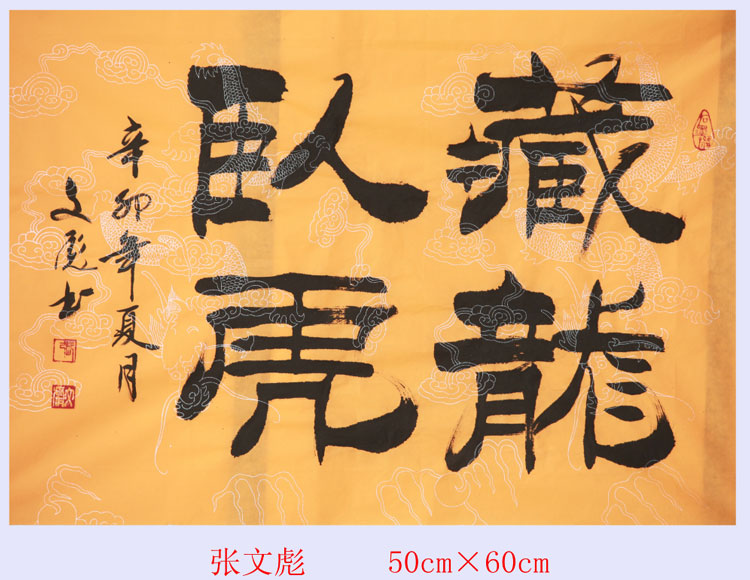 藏龍
臥虎
辛卯年夏月
文彪书
张文彪 50cm×60cm